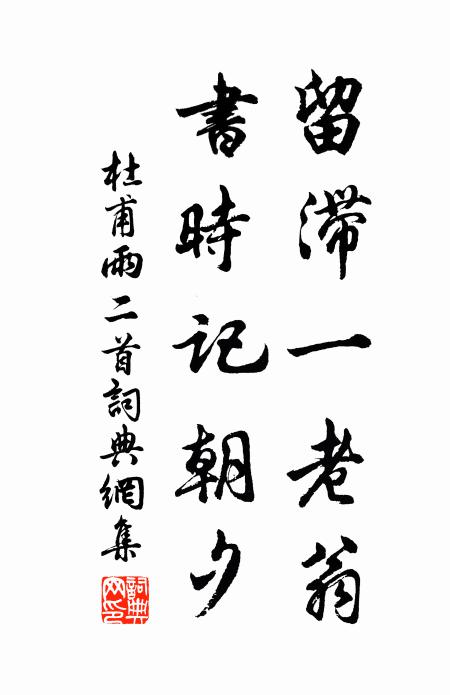 留滯一老翁
書時記朝夕
杜甫雨二首詞典網集
詞典網印